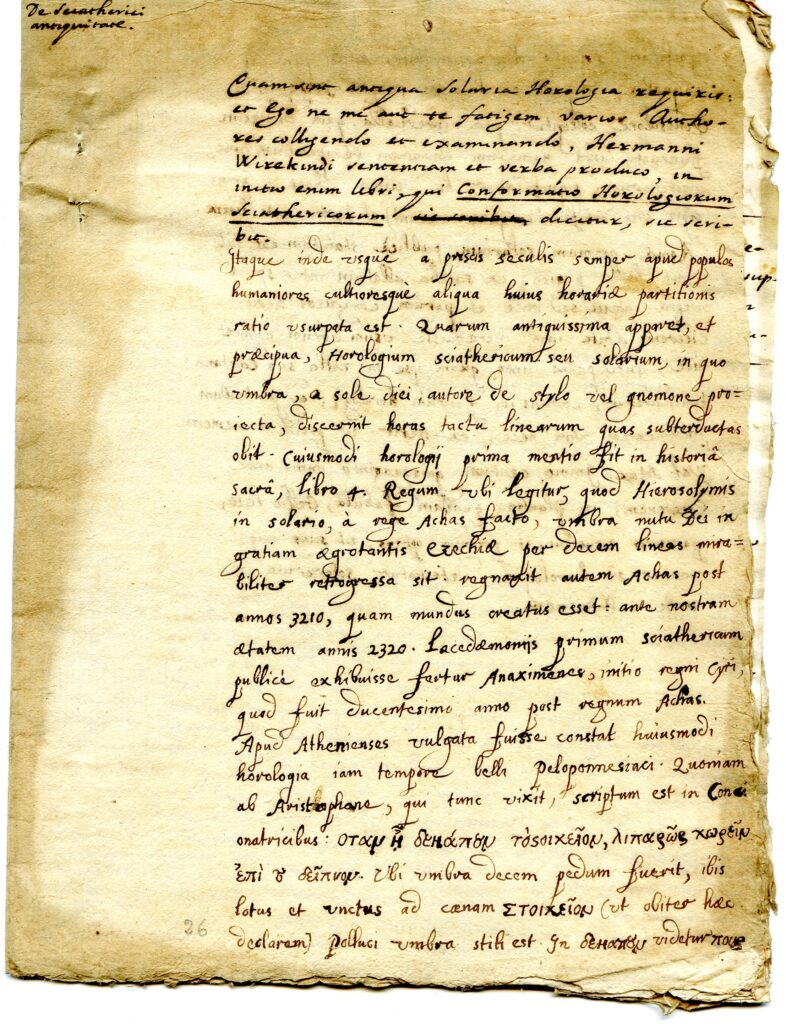 De Sciatherici
antiquitate.
Quam sint antiqua Solaria Horologia requiris:
et Ego ne me aut te fatigem varios Autho-
res colligendo et examinando, Hermanni
Wirekindi sententiam et verba produco, in
initio enim libri, qui Conformatio Horologiorum
Sciathericorum sic scribit, dicitur, sic scri-
bit.
Itaque inde vsque a priscis seculis semper apud populos
humaniores cultioresquè aliqua huius horariæ partitionis
ratio vsurpata est. Quarum antiquissima apparet, et
præcipua, Horologium sciathericum seu solarium, in quo
vmbra, a sole diei autore de stylo vel gnomone pro-
iecta, discernit horas tactu linearum quas subterductas
obit. Cuiusmodi horologij prima mentio fit in historiâ
sacrâ, libro 4. Regum vbi legitur, quod Hierosolymis
in solario, à rege Achas facto, vmbra nutu Dei in
gratiam ægrotantis Ezechiæ per decem lineas mira=
biliter retrogressa sit. regnauit autem Achas post
annos 3210, quam mundus creatus esset: ante nostram
ætatem annis 2320. Lacedæmonijs primum sciathericum
publicè exhibuisse fertur Anaximenes, initio regni Cyri,
quod fuit ducentesimo anno post regnum Achas.
Apud Athenienses vulgata fuisse constat huiusmodi
horologia iam tempore belli Peloponnesiaci. Quoniam
ab Aristophane, qui tunc vixit, scriptum est in Conci
onatricibus: οταν ᾖ δεκάπουν τὸ σοιχεῖον, λιπαρῶς χωρεῖν
ἐπὶ δεῖπνον. Vbi vmbra decem pedum fuerit, ibis
lotus et vnctus ad cænam ΣΤΟΙΧΕῖΟΝ (vt obiter hæc
declarem) Polluci vmbra stili est. In δεκαπουν videtur πους
26